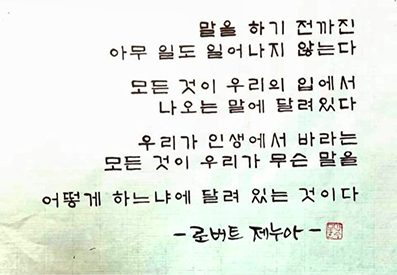 말을 하기 전까진
아무 일도 일어나지 않는다
모든 것이 우리의 입에서
나오는 말에 달려있다
우리가 인생에서 바라는
모든 것이 우리가 무슨 말을
어떻게 하느냐에 달려 있는 것이다
-로버트 제누아-